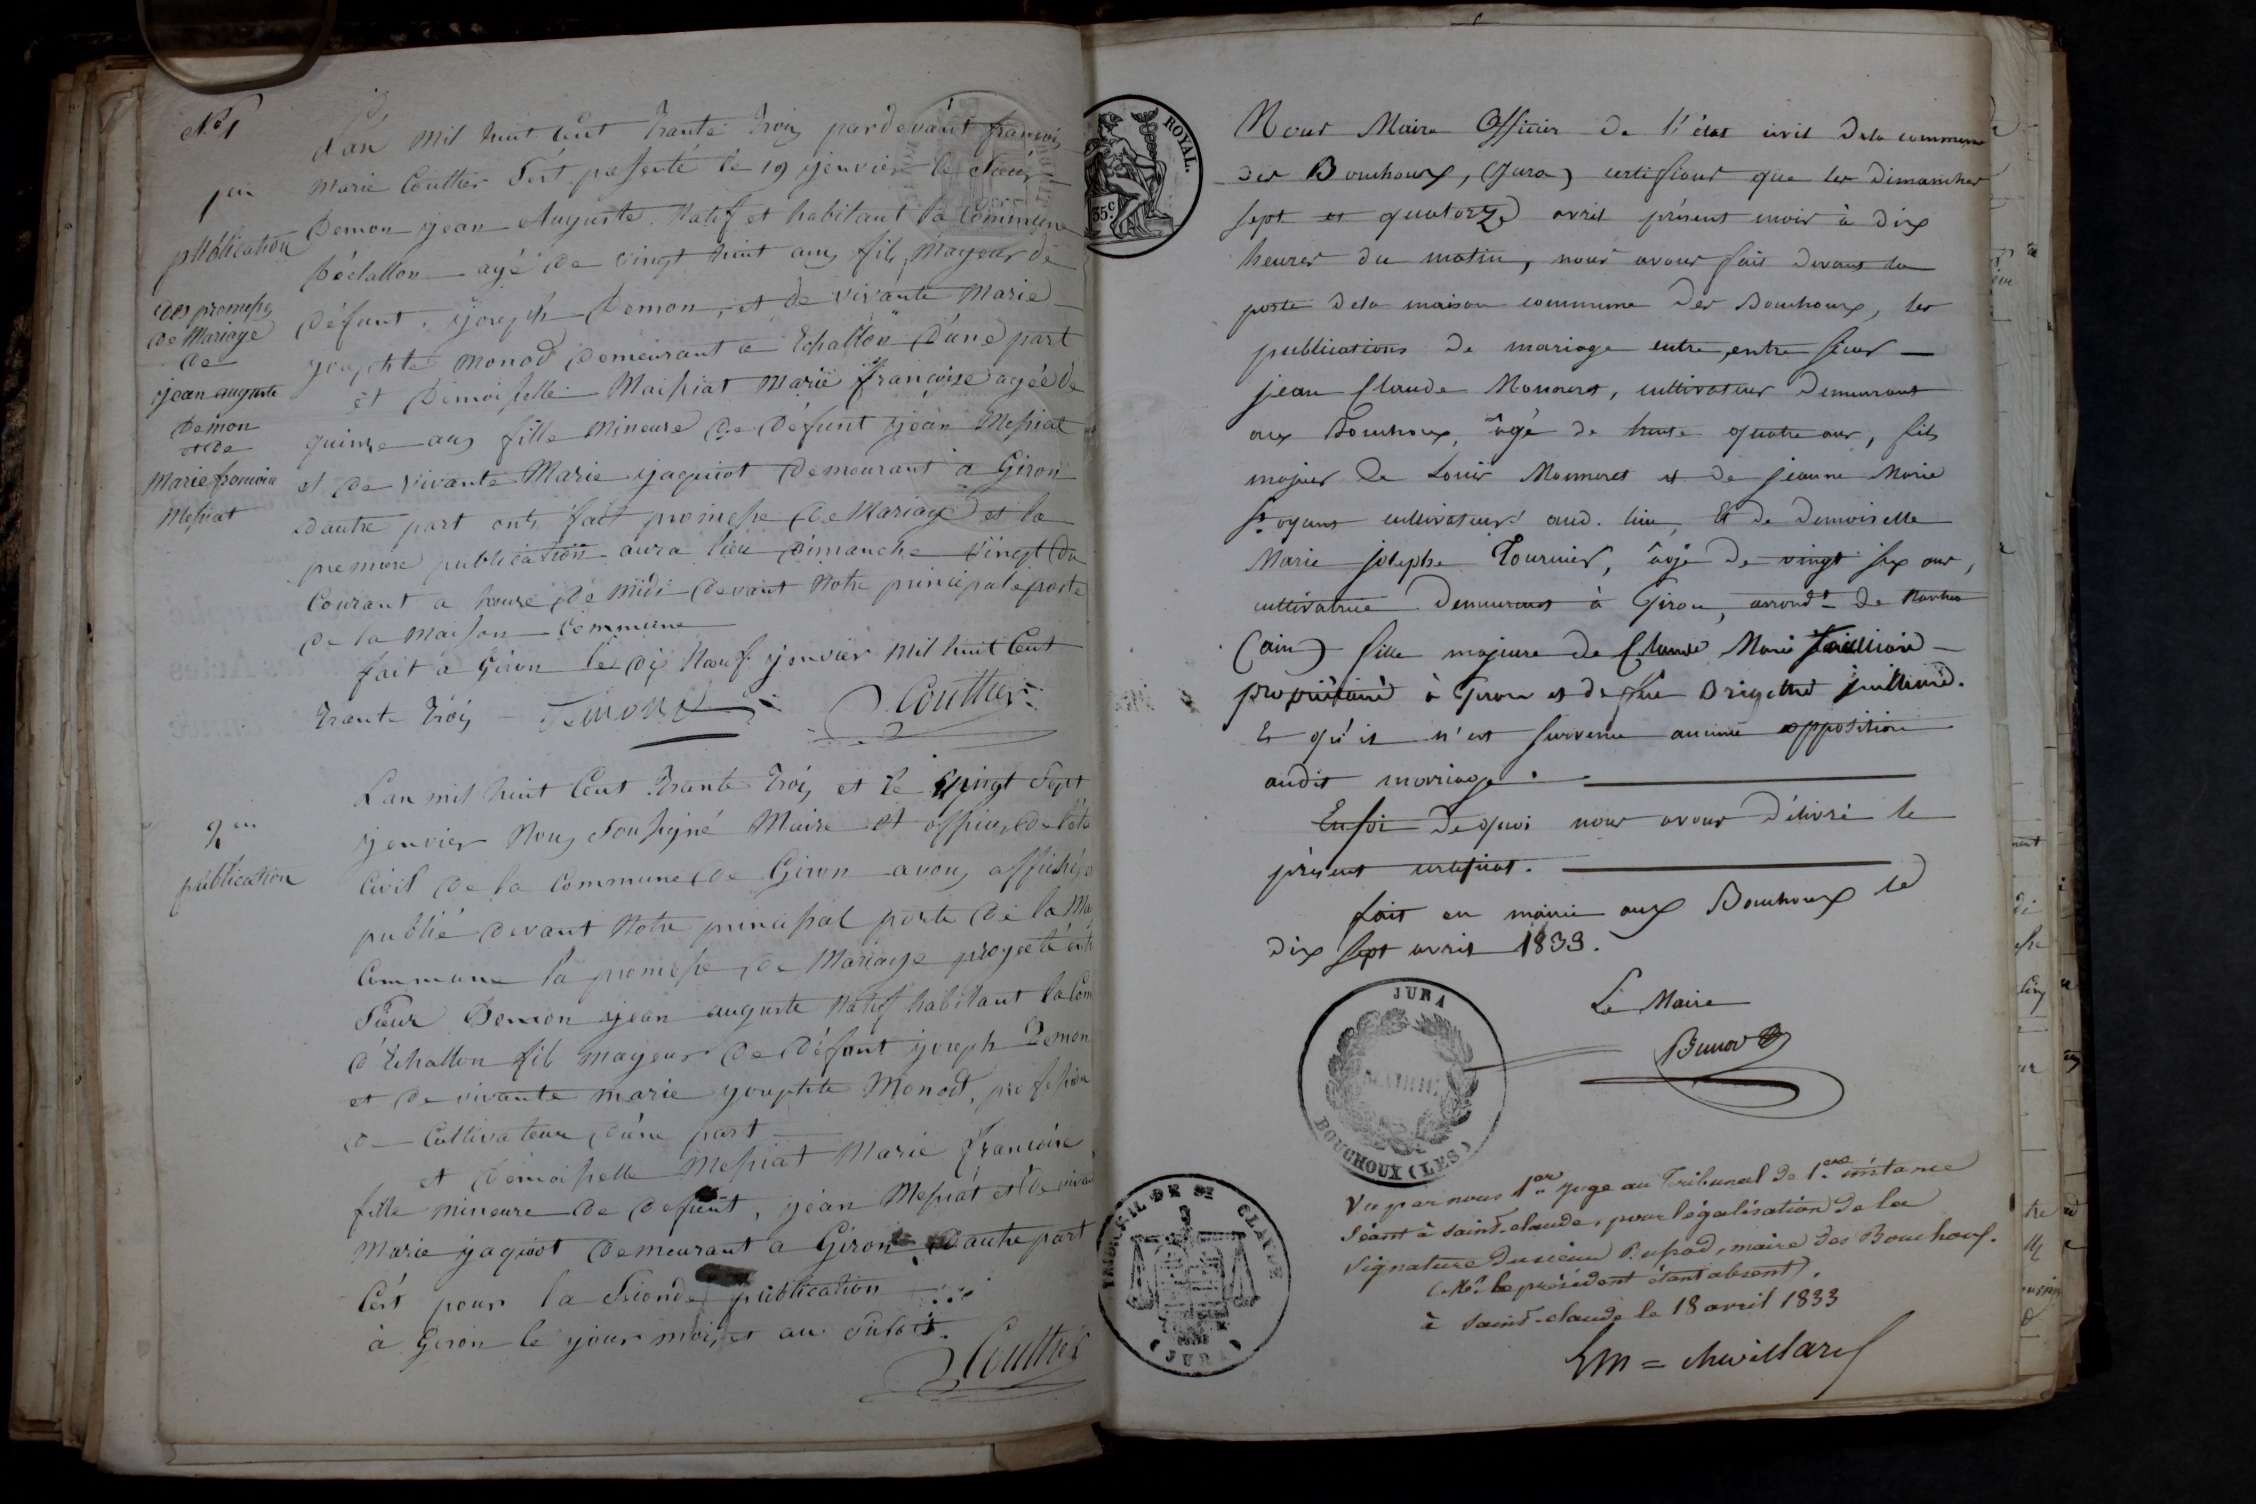 N° 1
1ere
publication
des promesse
de Mariage
de
jean auguste
Demon
et de
Marie francoise
Messiat
L'an mil huit Cent Trante Trois pardevant francois
Marie Couttier S'est presenté le 19 jenvier le Sieur
Demon jean Auguste Natif et habitant la Commune
D'échallon agé de vingt huit ans fils mayeur de
défunt joseph Demon, et de vivante Marie
josephte Monod demeurant a Echallon d'une part
et Demoiselle Maissiat Marie françoise agée de
quinze ans fille Mineure de défunt jean Messiat
et de vivante Marie jaquiot demeurant a Giron
dautre part onts fait promesse de Mariage et la
premiere publication aura lieu dimanche vingt du
Courant a heure de midi devant Notre principale porte
de la Maison Commune
fait a Giron le dix Neuf jenvier Mil huit Cent
Trante Trois Demond Couttier
2em
publication
L'an mil huit Cent Trante Trois et le vingt Sept
jenvier Nous Soussigné Maire et officier de l'éta
Civil de la Commune de Giron avons affiché
publié devant Notre principal porte de la Ma
Commune la promesse de Mariage projeté entre
Sieur Demon jean auguste Natif habitant la Com
d'Echallon fils mayeur de défunt joseph Demon
et de vivante marie josephte Monod, profession
de Cultivateur d'une part
et Demoiselle Messiat Marie Francoise
fille mineure de defunt, jean Messiat et de viva
Marie jaquiot demeurant a Giron dautre part
C'ést pour la Seconde publication
à Giron le jour mois et an susdit.
Couttier
ROYAL.
35 c
Nous Maire Officier de l'état civil de la commune
des Bouchoux, (Jura) certifions que les dimanches
sept et quatorze avril présent mois à dix
heures du matin, nous avons fait devant la
porte de la maison commune des Bouchoux, les
publications de mariage entre, entre sieur
jean Claude Monneret, cultivateur demeurant
aux Bouchoux, âgé de trente quatre ans, fils
majeur de Louis Monneret et de jeanne Marie
St oyant cultivateurs aud. lieu, Et de Demoiselle
Marie josephe Tournier, âgé de vingt six ans,
cultivatrice demeurant à Giron, arrondt de Nantua
(ain) fille majeure de Claude Marie
propriétaire à Giron et de feu Brigitte juilliard.
Et qu'il n'est survenu aucune opposition
audit mariage.
En foi de quoi nous avons délivré le
présent certificat.
fait en mairie aux Bouchoux le
dix sept avril 1833.
Le Maire
JURA
MAIRIE
BOUCHOUX (LES)
TRIBUNAL DE St CLAUDE
(JURA)
Vu par nous 1er juge au Tribunal de 1ere instance
Séant à Saint-claude, pour légalisation de la
signature du sieur, maire des Bouchoux.
(Mr le président étant absent).
à Saint-claude le 18 avril 1833